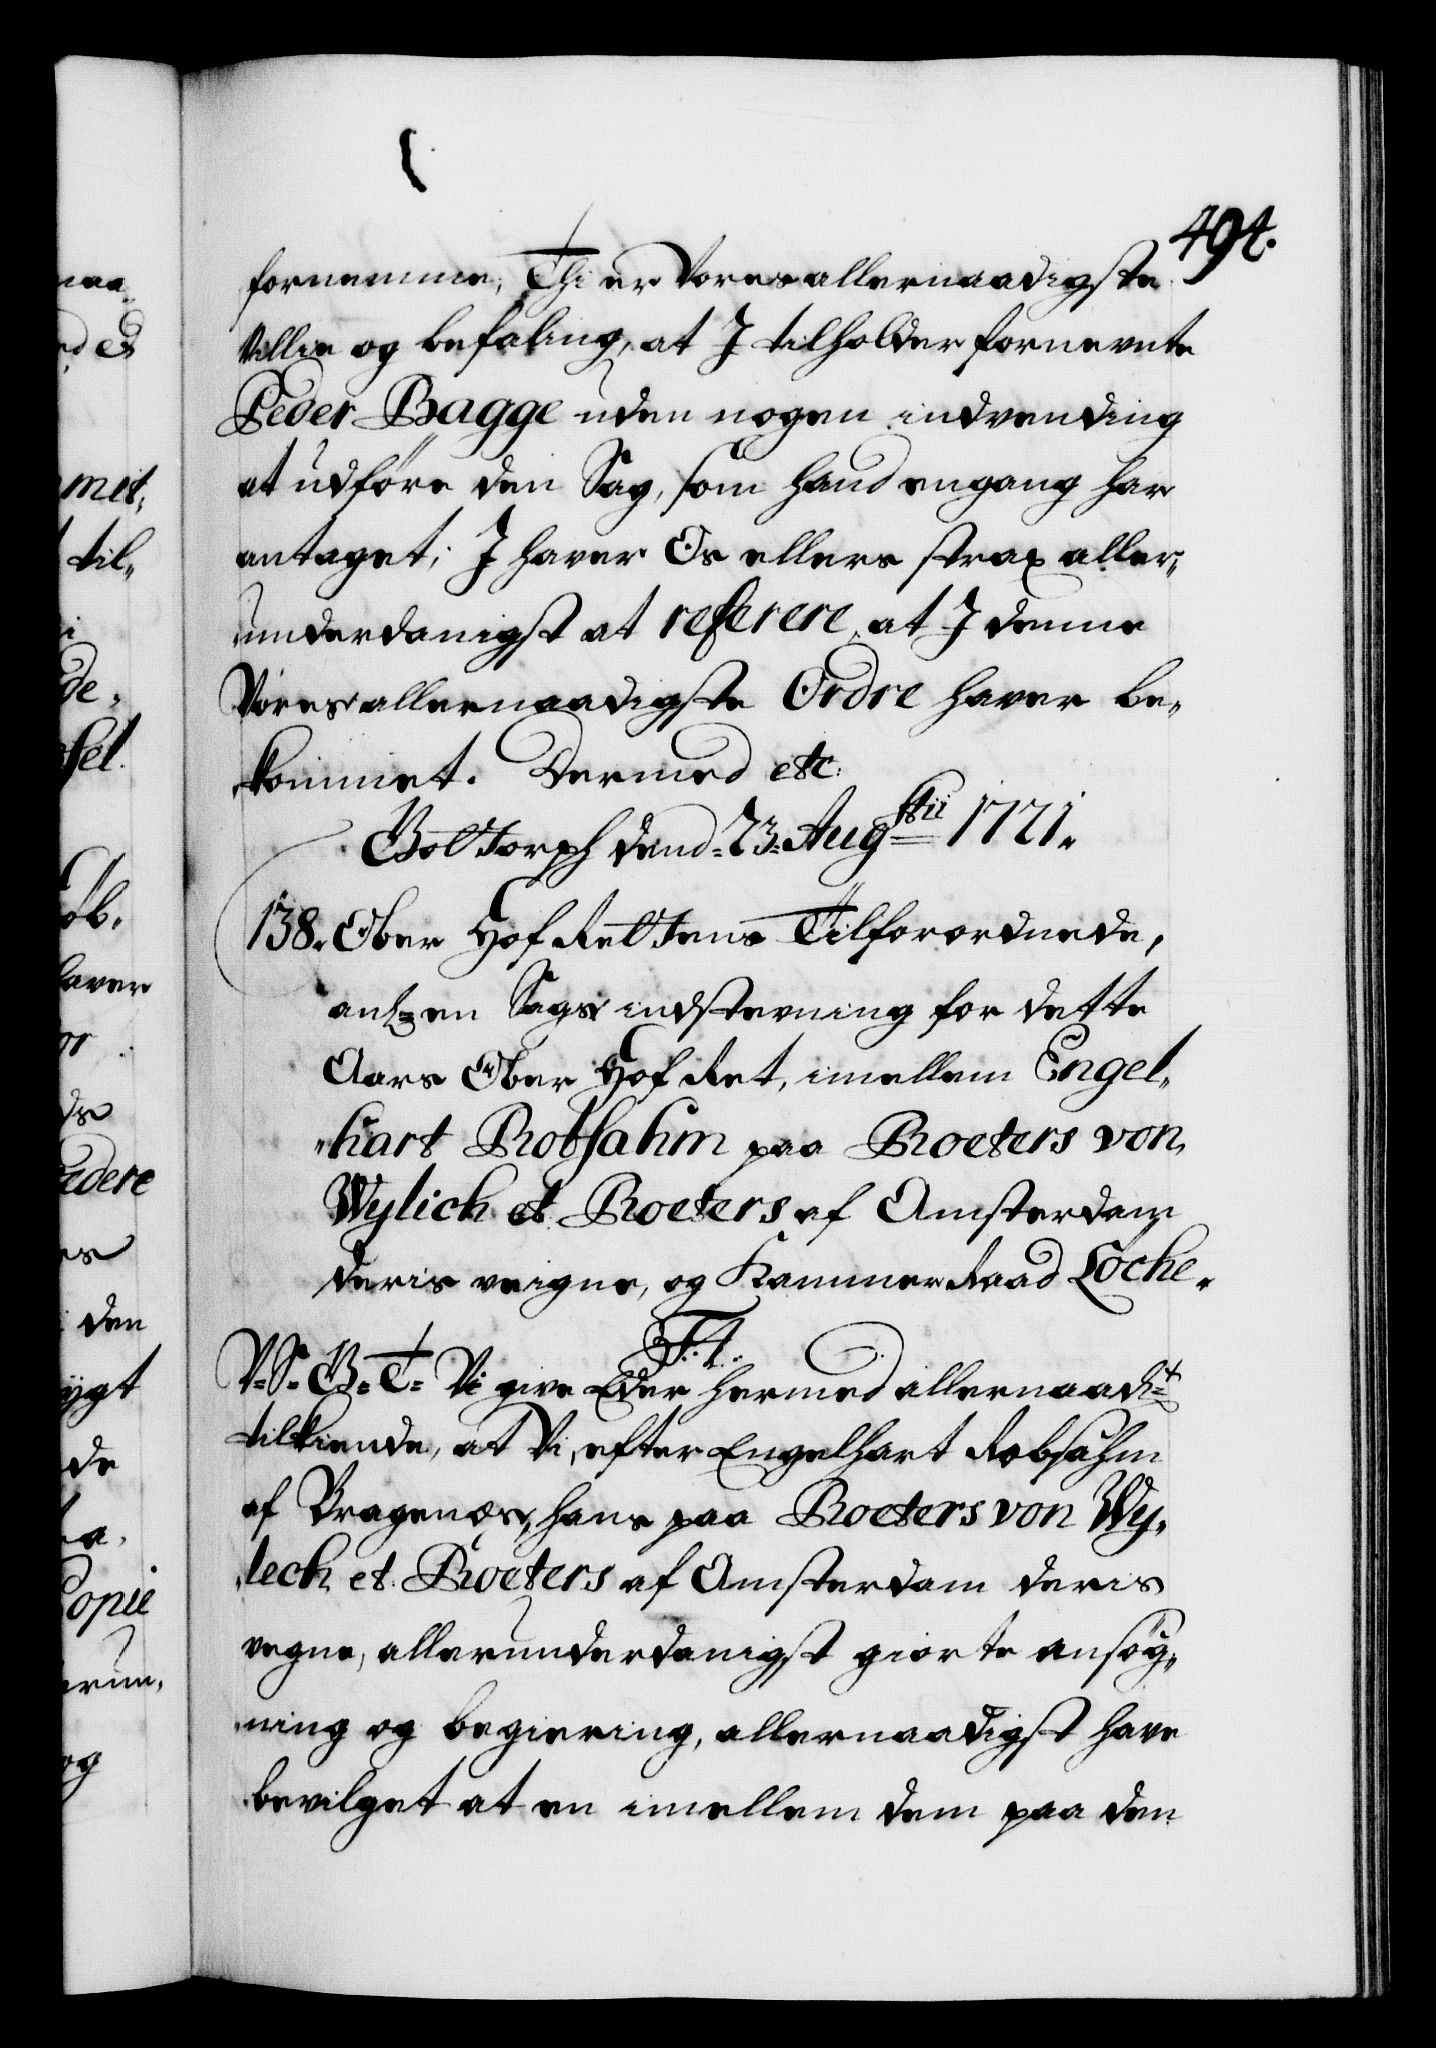 494.
fornemme; Thi er Vores allernaadigste
Villie og befaling, at J tilholder fornevnte
Peder Bagge uden nogen indvending
at udföre den Sag, som hand engang har
antaget; J haver Os ellers strax aller„
underdanigst at referere, at J denne
Vores allernaadigste Ordre haver be„
kommet. Dermed etc:
Gottorph dend 23. Augstii 1721.
138. Ober Hof Rettens Tilforordnede,
anl: en Sags indstevning for dette
Aars Ober Hof Ret, imellem Engel„
„hart Robsahm paa Roeters von
Wylich et Roeters af Amsterdam
deris veigne, og Kammer Raad Locke.
F. 4.
V. S. G. T. Vi give Eder hermed allernaadt
tilkiende, at Vi, efter Engelhart Robsahm
af Bragenæs, hans paa Roeters von Wy„
„lech et. Roeters af Amsterdam deris
vegne, allerunderdanigst giorte ansög„
„ning og begiering, allernaadigst have
bevilget at en imellem dem paa den
naa„
met„
til„
de„
fel.
öb„
haver
or
edere
es
den
ygt
de
ta„
Copie
erun„
og